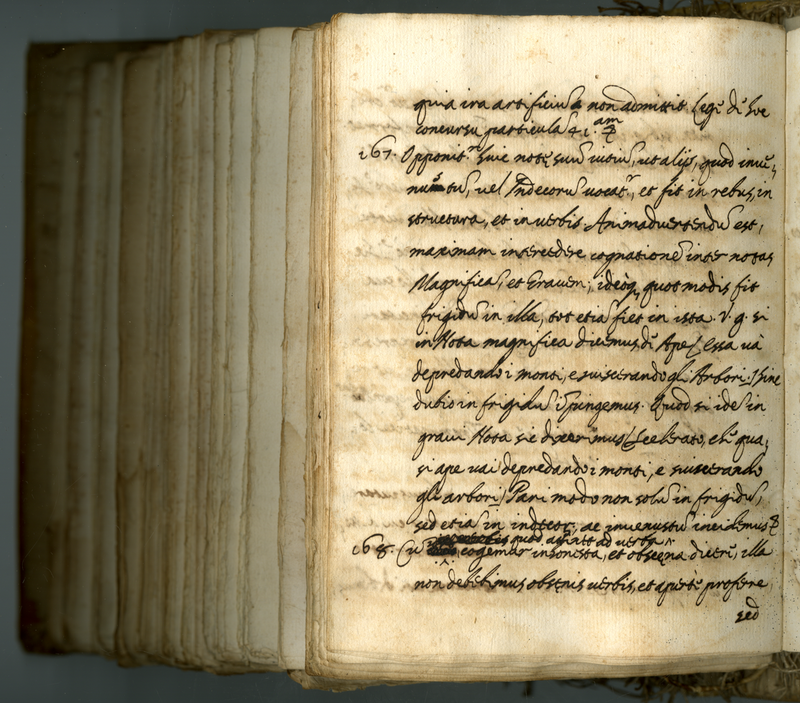 quia ira artificiũ non admittit. Lege de hoc
concursu particula 4 i.am
167. Opponitr huic notę suũ uitiũ, ut alijs, quod inue-
nustũ, uel Indecorũ uocatr, et fit in rebus, in
structura, et in uerbis. Animaduertendũ est,
maximam intercedere cognationẽ inter notas
Magnificã, et Grauem; ideoq, quot modis fit
frigidũ in illa, tot etiã fiet in ista. V. g. si
in Nota magnifica dicimus, dĩ Ape (Essa uà
depredando i monti, e suiscerando gli Arbori.) sine
dubio in frigidũ ĩpingemus. Quod si idẽ in
graui Nota sic dixerimus (Scelerato, chẽ qua-
si ape uai depredando i monti, e suiscerando
gli arbori) Pari modo non solũ in frigidũ,
sed etiã in indecor, ac inuenustũ incidemus
quod attinet ad uerba
168. Cũ cogemur inhonesta, et obscęna dicerẽ, illa
non debebimus obscenis uerbis, et apertè proferre
sed